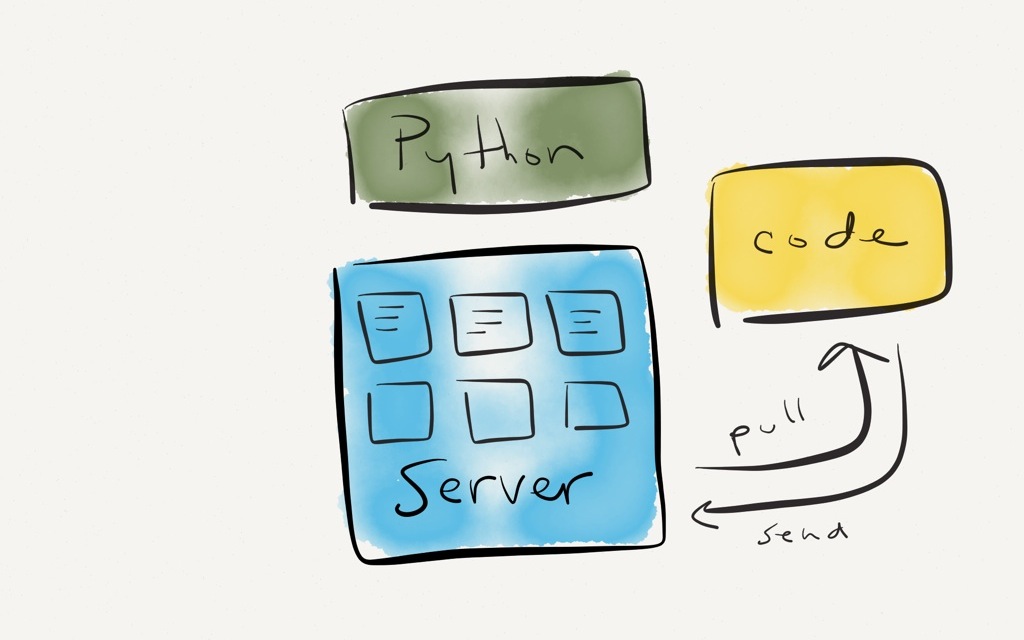 Python
code
Server
pull
send